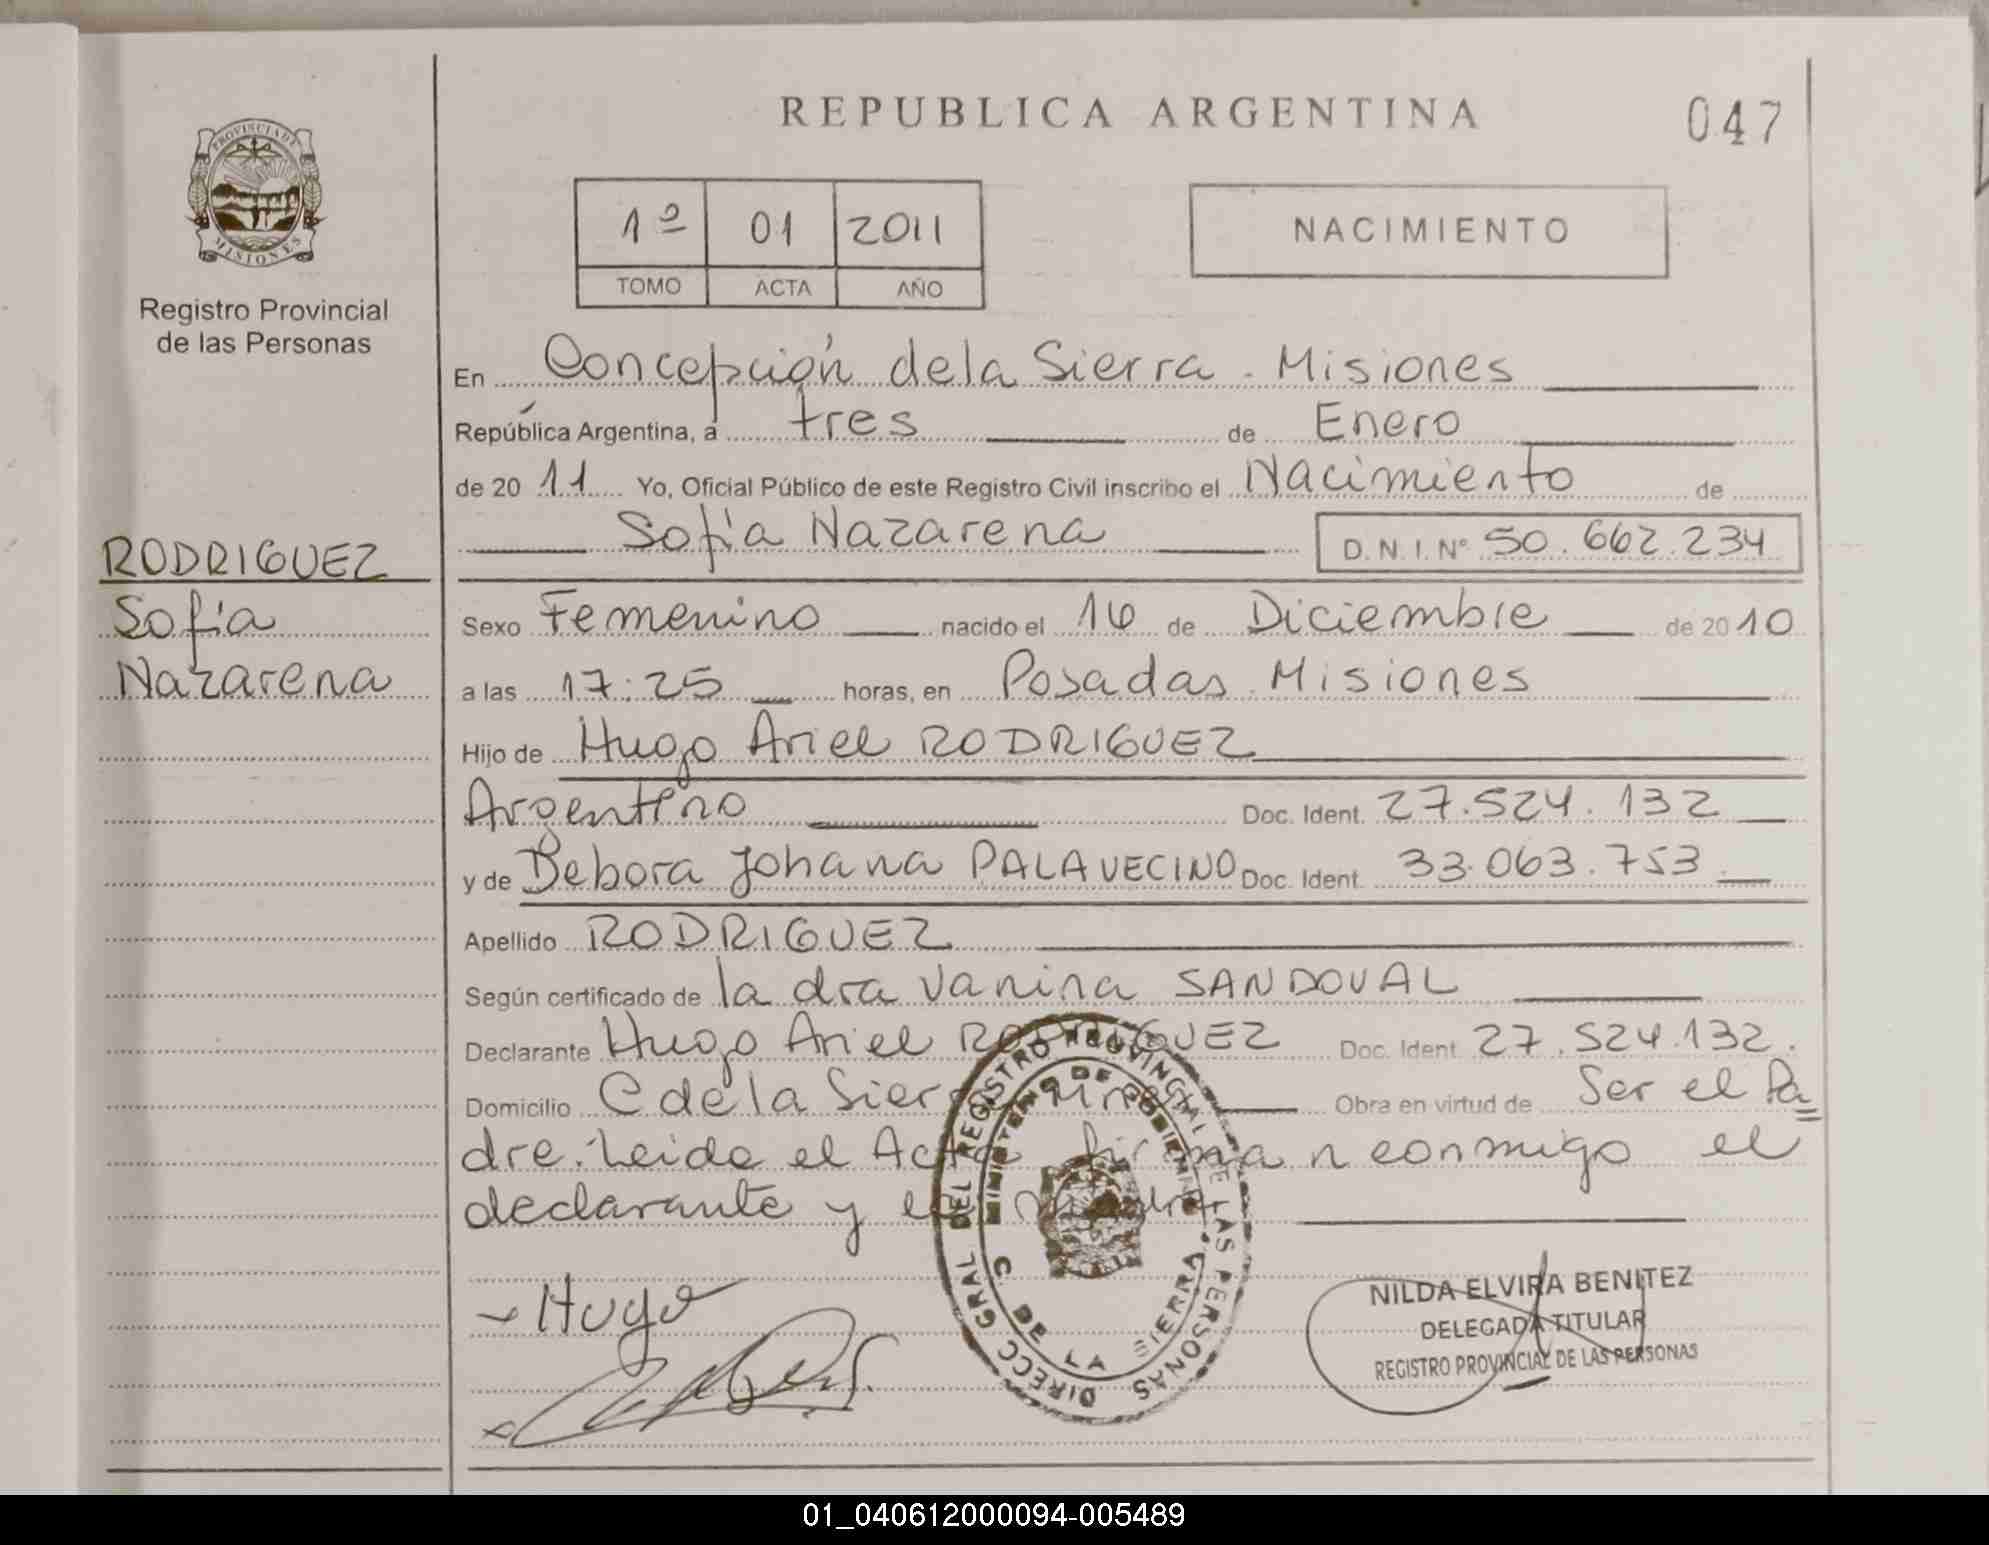 REPUBLICA ARGENTINA
047
PROVINCIA DE MISIONES
Registro Provincial
de las Personas
1º 01 2011
TOMO ACTA AÑO
NACIMIENTO
En Concepción de la Sierra - Misiones
República Argentina, á tres de Enero
de 20 11 Yo, Oficial Público de este Registro Civil inscribo el Nacimiento de
Sofía Nazarena D.N.I. Nº 50.662.234
RODRIGUEZ
Sofía
Nazarena
Sexo Femenino nacido el 16 de Diciembre de 2010
a las 17:25 horas, en Posadas. Misiones
Hijo de Hugo Ariel RODRIGUEZ
Argentino Doc. Ident. 27.524.132
y de Debora Johana PALAVECINO Doc. Ident. 33.063.753
Apellido RODRIGUEZ
Según certificado de la dra Vanina SANDOVAL
Declarante Hugo Ariel RODRIGUEZ Doc. Ident. 27.524.132.
Domicilio C de la Sierra Obra en virtud de Ser el Pa=
dre. Leida el Acta firman conmigo el
declarante y la madre
Hugo
DIRECC GRAL DEL REGISTRO PROVINCIAL DE LAS PERSONAS
MINISTERIO DE GOBIERNO
C. DE LA SIERRA
NILDA ELVIRA BENITEZ
DELEGADA TITULAR
REGISTRO PROVINCIAL DE LAS PERSONAS
01_040612000094-005489